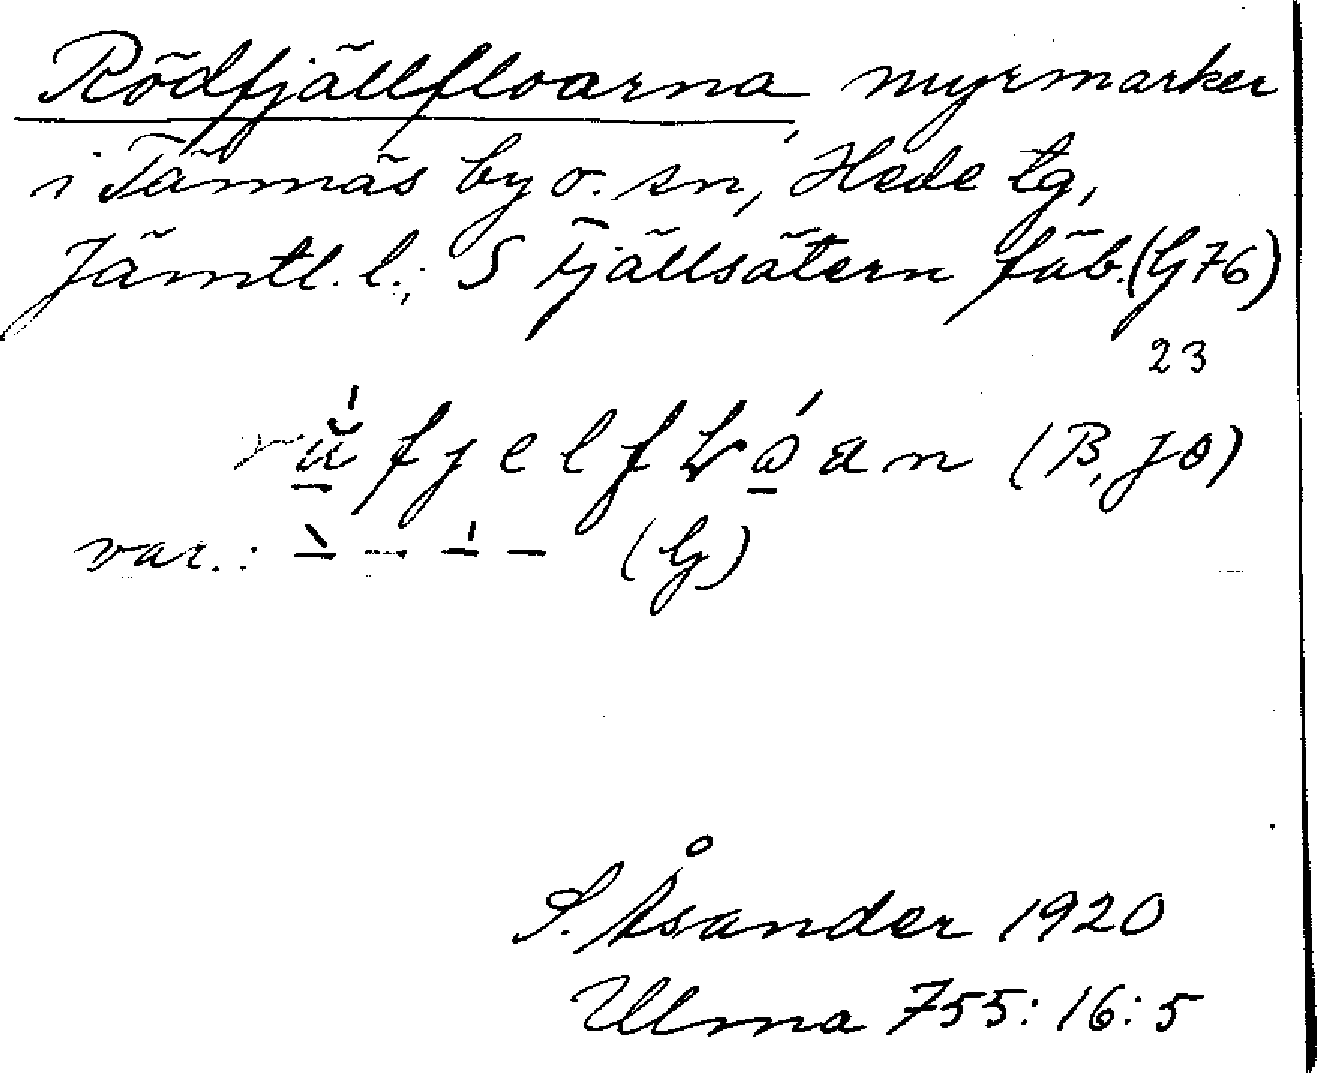 Rödfjällfloarna, myrmarker
i Tännäs by o. sn, Hede tg,
Jämtl. l.; S Fjällsätern fäb. (G 76)
23
(B, JO)
var.: (G)
S. Åsander 1920
Ulma 755:16:5